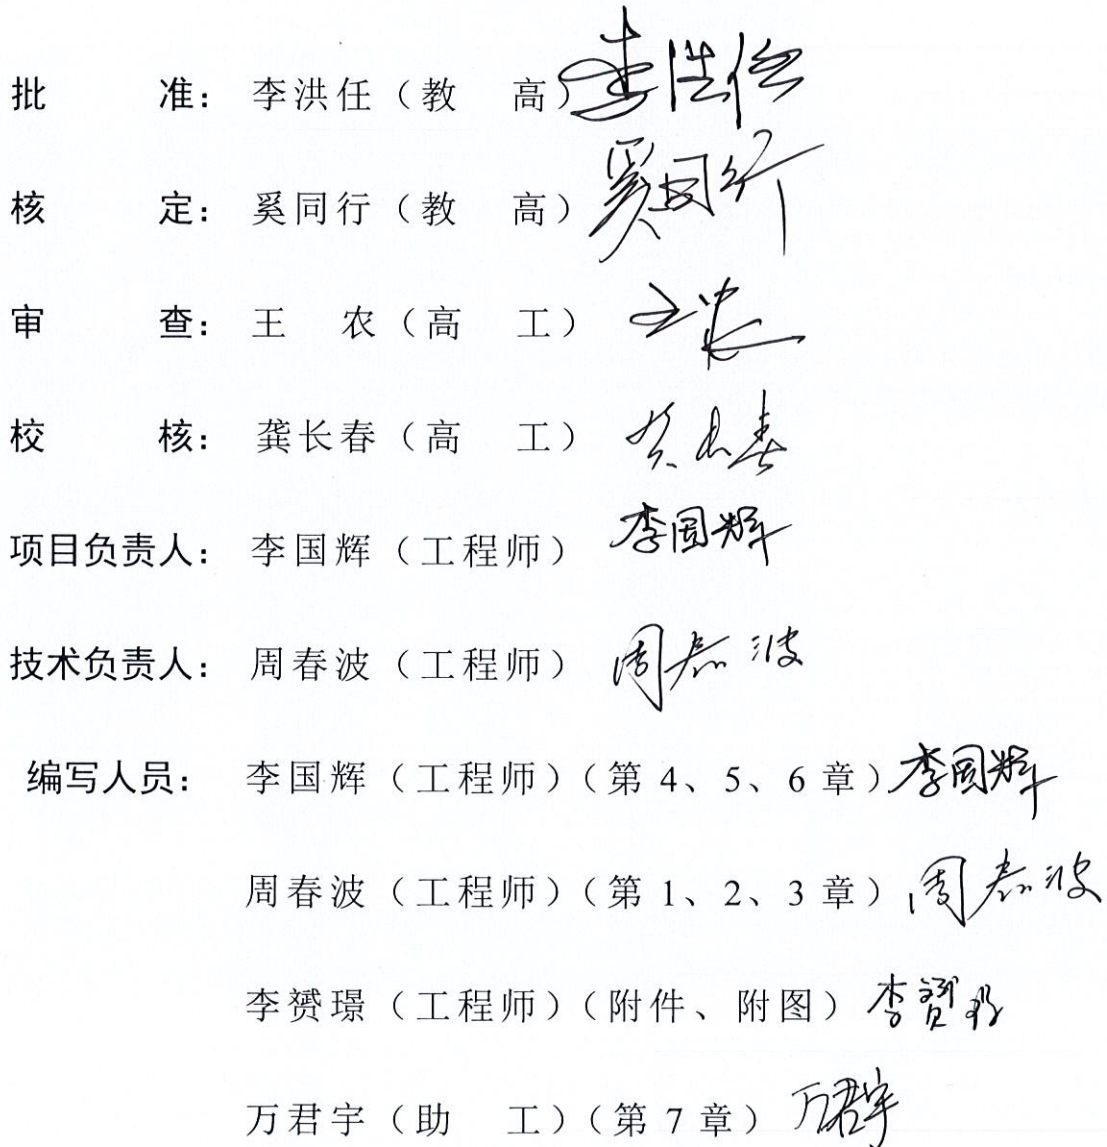 批 准: 李洪任(教 高) 李洪任
核 定: 奚同行(教 高) 奚同行
审 查: 王 农(高 工) 王农
校 核: 龚长春(高 工) 龚长春
项目负责人: 李国辉(工程师) 李国辉
技术负责人: 周春波(工程师) 周春波
编写人员: 李国辉(工程师)(第 4、5、6 章) 李国辉
周春波(工程师)(第 1、2、3 章) 周春波
李赟璟(工程师)(附件、附图) 李赟璟
万君宇(助 工)(第 7 章) 万君宇